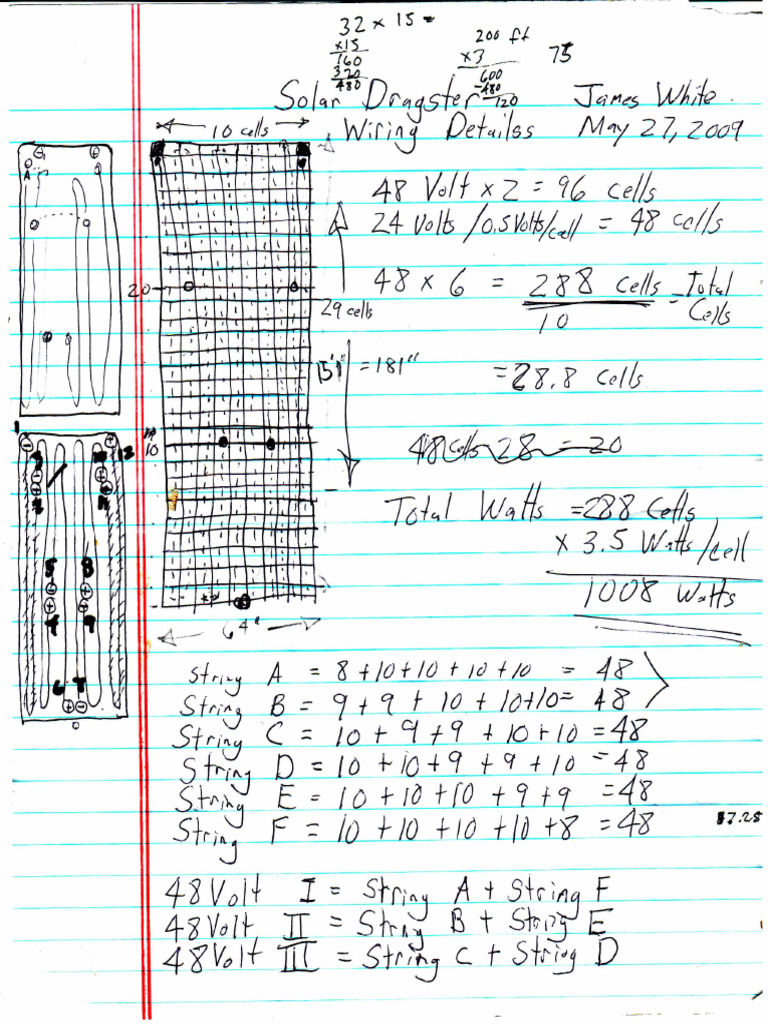 32 x 15 =
x15
160
320
480
200 ft
x3
600
-480
120
75
Solar Dragster James White
Wiring Detailss May 27, 2009
10 cells
48 Volt x 2 = 96 cells
24 Volts / 0.5 Volts/cell = 48 cells
48 x 6 = 288 cells = Total Cells
10
= 28.8 cells
20
29 cells
15'1" = 181"
10
48 cells 28 = 20
Total Watts = 288 Cells
x 3.5 Watts/cell
1008 Watts
64"
A
1
12
5
8
9
6 7
String A = 8 + 10 + 10 + 10 + 10 = 48
String B = 9 + 9 + 10 + 10 + 10 = 48
String C = 10 + 9 + 9 + 10 + 10 = 48
String D = 10 + 10 + 9 + 9 + 10 = 48
String E = 10 + 10 + 10 + 9 + 9 = 48
String F = 10 + 10 + 10 + 10 + 8 = 48
48 Volt I = String A + String F
48 Volt II = String B + String E
48 Volt III = String C + String D